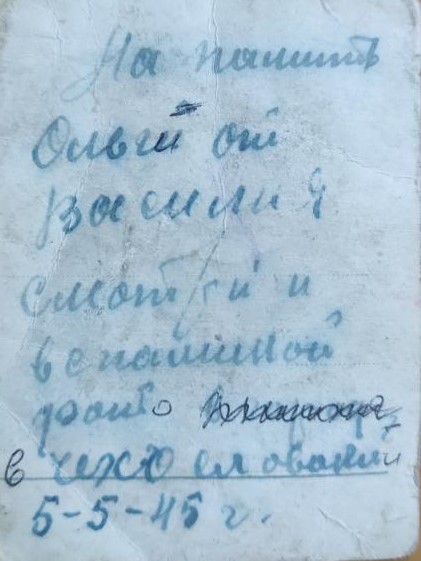 На памить
Ользи от
Василия
смотрги и
вспаминой
фото
в чехословакии
5-5-45 г.